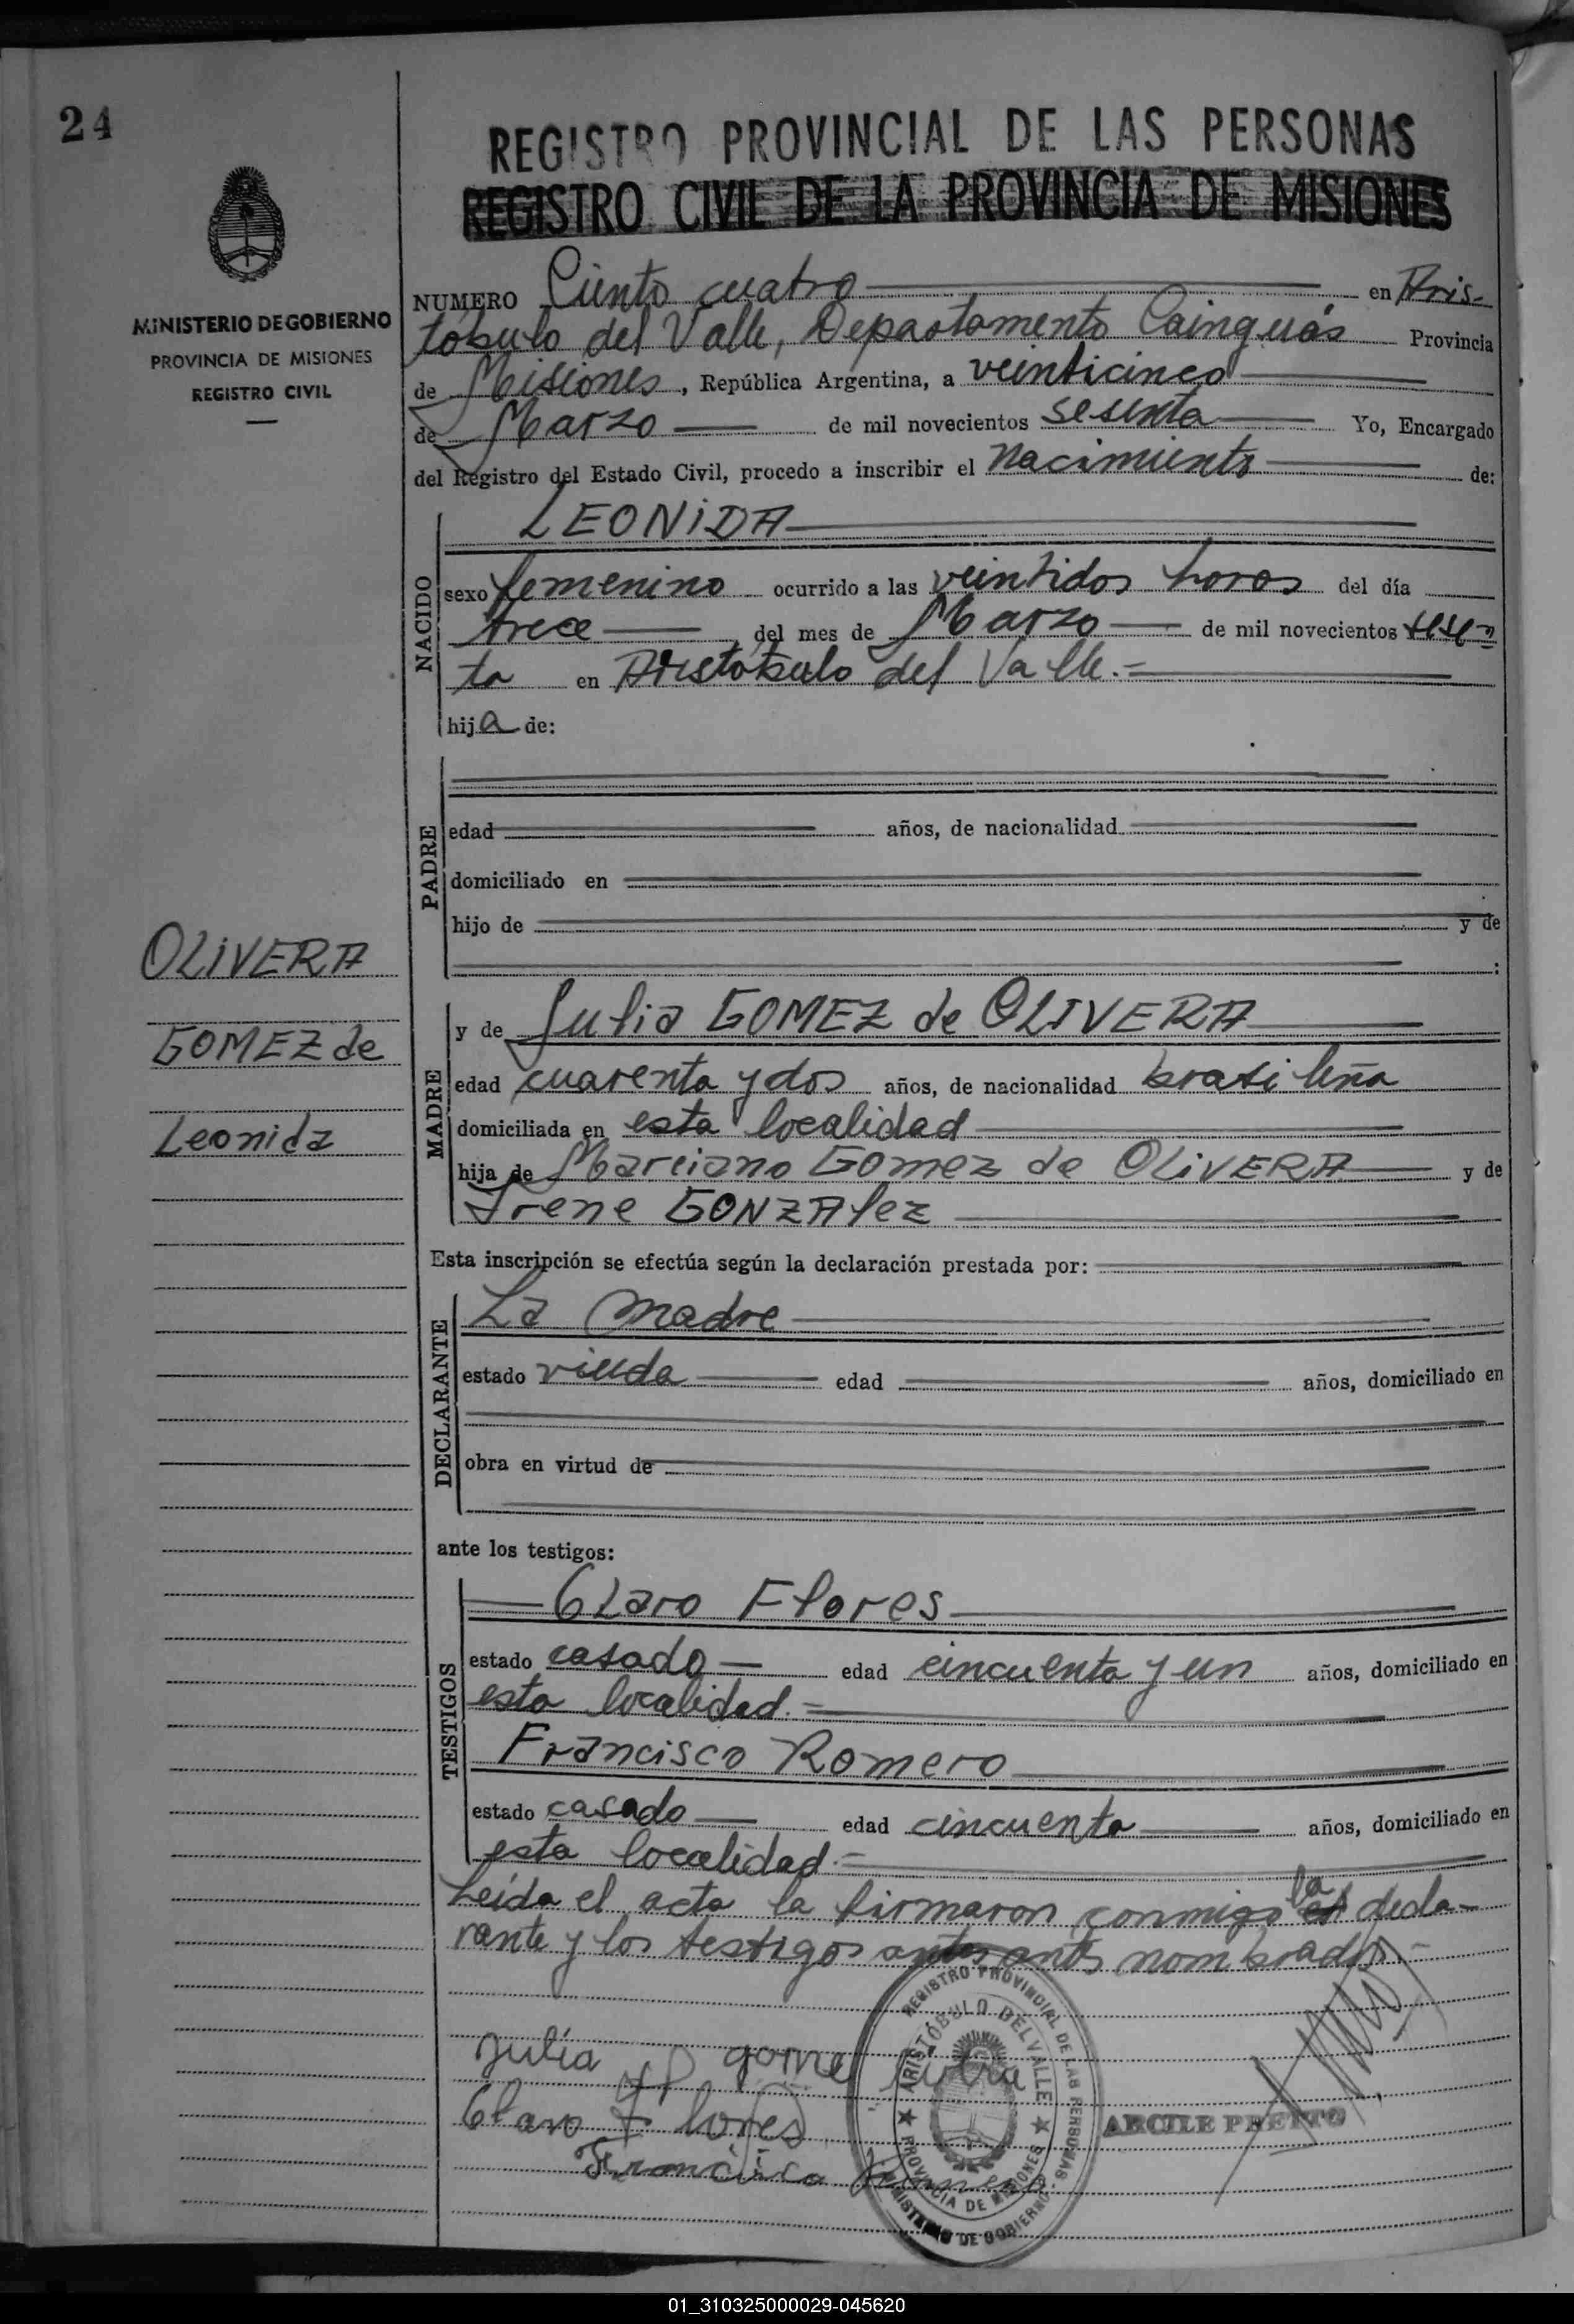 24
REGISTRO PROVINCIAL DE LAS PERSONAS
REGISTRO CIVIL DE LA PROVINCIA DE MISIONES
MINISTERIO DE GOBIERNO
PROVINCIA DE MISIONES
REGISTRO CIVIL
NUMERO Ciento cuatro en Aris-
tóbulo del Valle, Departamento Cainguás Provincia
de Misiones, República Argentina, a veinticinco
de Marzo de mil novecientos sesenta Yo, Encargado
del Registro del Estado Civil, procedo a inscribir el Nacimiento de:
NACIDO
LEONIDA
sexo femenino ocurrido a las veintidos horas del día
trece del mes de Marzo de mil novecientos sesen
ta en Aristóbulo del Valle.=
hija de:
PADRE
edad años, de nacionalidad
domiciliado en
hijo de y de
:
OLIVERA
GOMEZ de
Leonida
MADRE
y de Julia GOMEZ de OLIVERA
edad cuarenta y dos años, de nacionalidad brasileña
domiciliada en esta localidad
hija de Marciano Gomez de OLIVERA y de
Irene GONZALez
Esta inscripción se efectúa según la declaración prestada por:
DECLARANTE
La madre
estado viuda edad años, domiciliado en
obra en virtud de
ante los testigos:
TESTIGOS
Claro Flores
estado casado edad cincuenta y un años, domiciliado en
esta localidad.=
Francisco Romero
estado casado edad cincuenta años, domiciliado en
esta localidad.=
Leída el acta la firmaron conmigo la decla-
rante y los testigos antes nombrados.-
Julia gome
Claro Flores
Francisco Romero
REGISTRO PROVINCIAL DE LAS PERSONAS
ARISTÓBULO DEL VALLE
PROVINCIA DE MISIONES
MINISTERIO DE GOBIERNO
ARCILE PRETTO
01_310325000029-045620